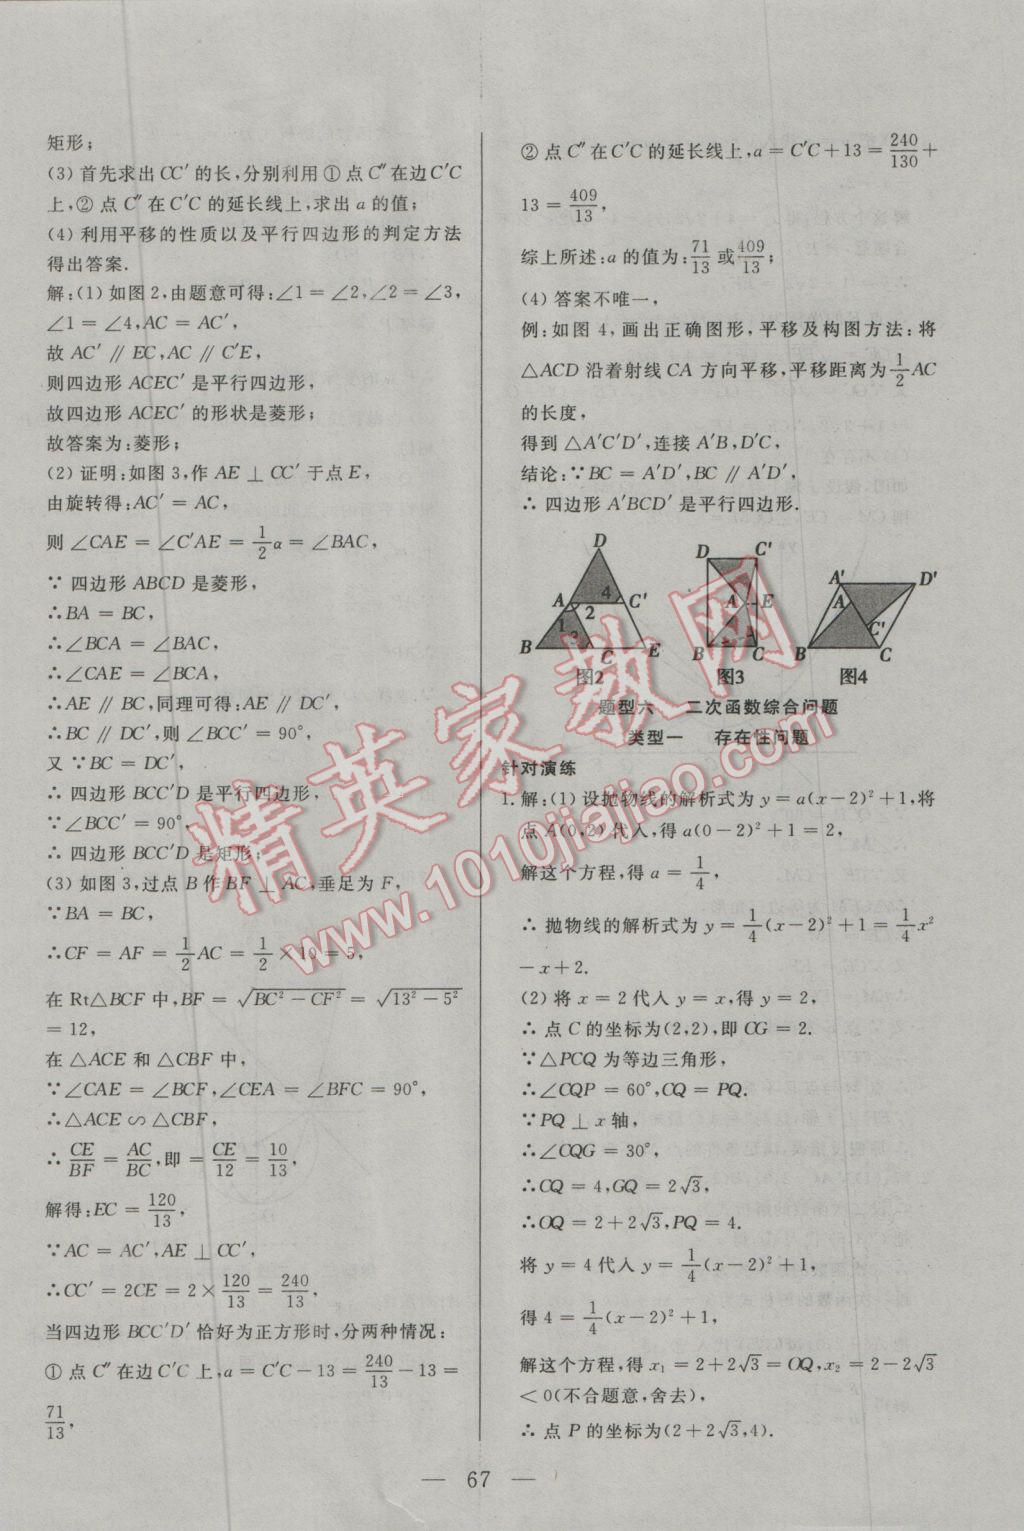 矩形;
(3) 首先求出 CC′ 的长,分别利用 ① 点 C″ 在边 C′C
上,② 点 C″ 在 C′C 的延长线上,求出 a 的值;
(4) 利用平移的性质以及平行四边形的判定方法
得出答案.
解:(1) 如图 2,由题意可得:∠1 = ∠2,∠2 = ∠3,
∠1 = ∠4,AC = AC′,
故 AC′ ∥ EC,AC ∥ C′E,
则四边形 ACEC′ 是平行四边形,
故四边形 ACEC′ 的形状是菱形;
故答案为:菱形;
(2) 证明:如图 3,作 AE ⊥ CC′ 于点 E,
由旋转得:AC′ = AC,
则 ∠CAE = ∠C′AE = 1/2 α = ∠BAC,
∵ 四边形 ABCD 是菱形,
∴BA = BC,
∴∠BCA = ∠BAC,
∴∠CAE = ∠BCA,
∴AE ∥ BC,同理可得:AE ∥ DC′,
∴BC ∥ DC′,则 ∠BCC′ = 90°,
又 ∵BC = DC′,
∴ 四边形 BCC′D 是平行四边形,
∵∠BCC′ = 90°,
∴ 四边形 BCC′D 是矩形;
(3) 如图 3,过点 B 作 BF ⊥ AC,垂足为 F,
∵BA = BC,
∴CF = AF = 1/2 AC = 1/2 × 10 = 5,
在 Rt△BCF 中,BF = √(BC² − CF²) = √(13² − 5²)
= 12,
在 △ACE 和 △CBF 中,
∵∠CAE = ∠BCF,∠CEA = ∠BFC = 90°,
∴△ACE ∽ △CBF,
∴ CE/BF = AC/BC,即 = CE/12 = 10/13,
解得:EC = 120/13,
∵AC = AC′,AE ⊥ CC′,
∴CC′ = 2CE = 2 × 120/13 = 240/13,
当四边形 BCC′D′ 恰好为正方形时,分两种情况:
① 点 C″ 在边 C′C 上,a = C′C − 13 = 240/13 − 13 =
71/13,
② 点 C″ 在 C′C 的延长线上,a = C′C + 13 = 240/130 +
13 = 409/13,
综上所述:a 的值为:71/13 或 409/13;
(4) 答案不唯一,
例:如图 4,画出正确图形,平移及构图方法:将
△ACD 沿着射线 CA 方向平移,平移距离为 1/2 AC
的长度,
得到 △A′C′D′,连接 A′B,D′C,
结论:∵BC = A′D′,BC ∥ A′D′,
∴ 四边形 A′BCD′ 是平行四边形.
D
A 4 C′
2
1
3
B C E
图2
D C′
A E
B C
图3
A′ D′
A
C′
B C
图4
题型六 二次函数综合问题
类型一 存在性问题
针对演练
1. 解:(1) 设抛物线的解析式为 y = a(x − 2)² + 1,将
点 A(0,2) 代入,得 a(0 − 2)² + 1 = 2,
解这个方程,得 a = 1/4,
∴ 抛物线的解析式为 y = 1/4 (x − 2)² + 1 = 1/4 x²
− x + 2.
(2) 将 x = 2 代入 y = x,得 y = 2,
∴ 点 C 的坐标为(2,2),即 CG = 2.
∵△PCQ 为等边三角形,
∴∠CQP = 60°,CQ = PQ.
∵PQ ⊥ x 轴,
∴∠CQG = 30°,
∴CQ = 4,GQ = 2√3,
∴OQ = 2 + 2√3,PQ = 4.
将 y = 4 代入 y = 1/4 (x − 2)² + 1,
得 4 = 1/4 (x − 2)² + 1,
解这个方程,得 x₁ = 2 + 2√3 = OQ,x₂ = 2 − 2√3
< 0(不合题意,舍去),
∴ 点 P 的坐标为(2 + 2√3,4).
— 67 —
精英家教网
www.1010jiajiao.com